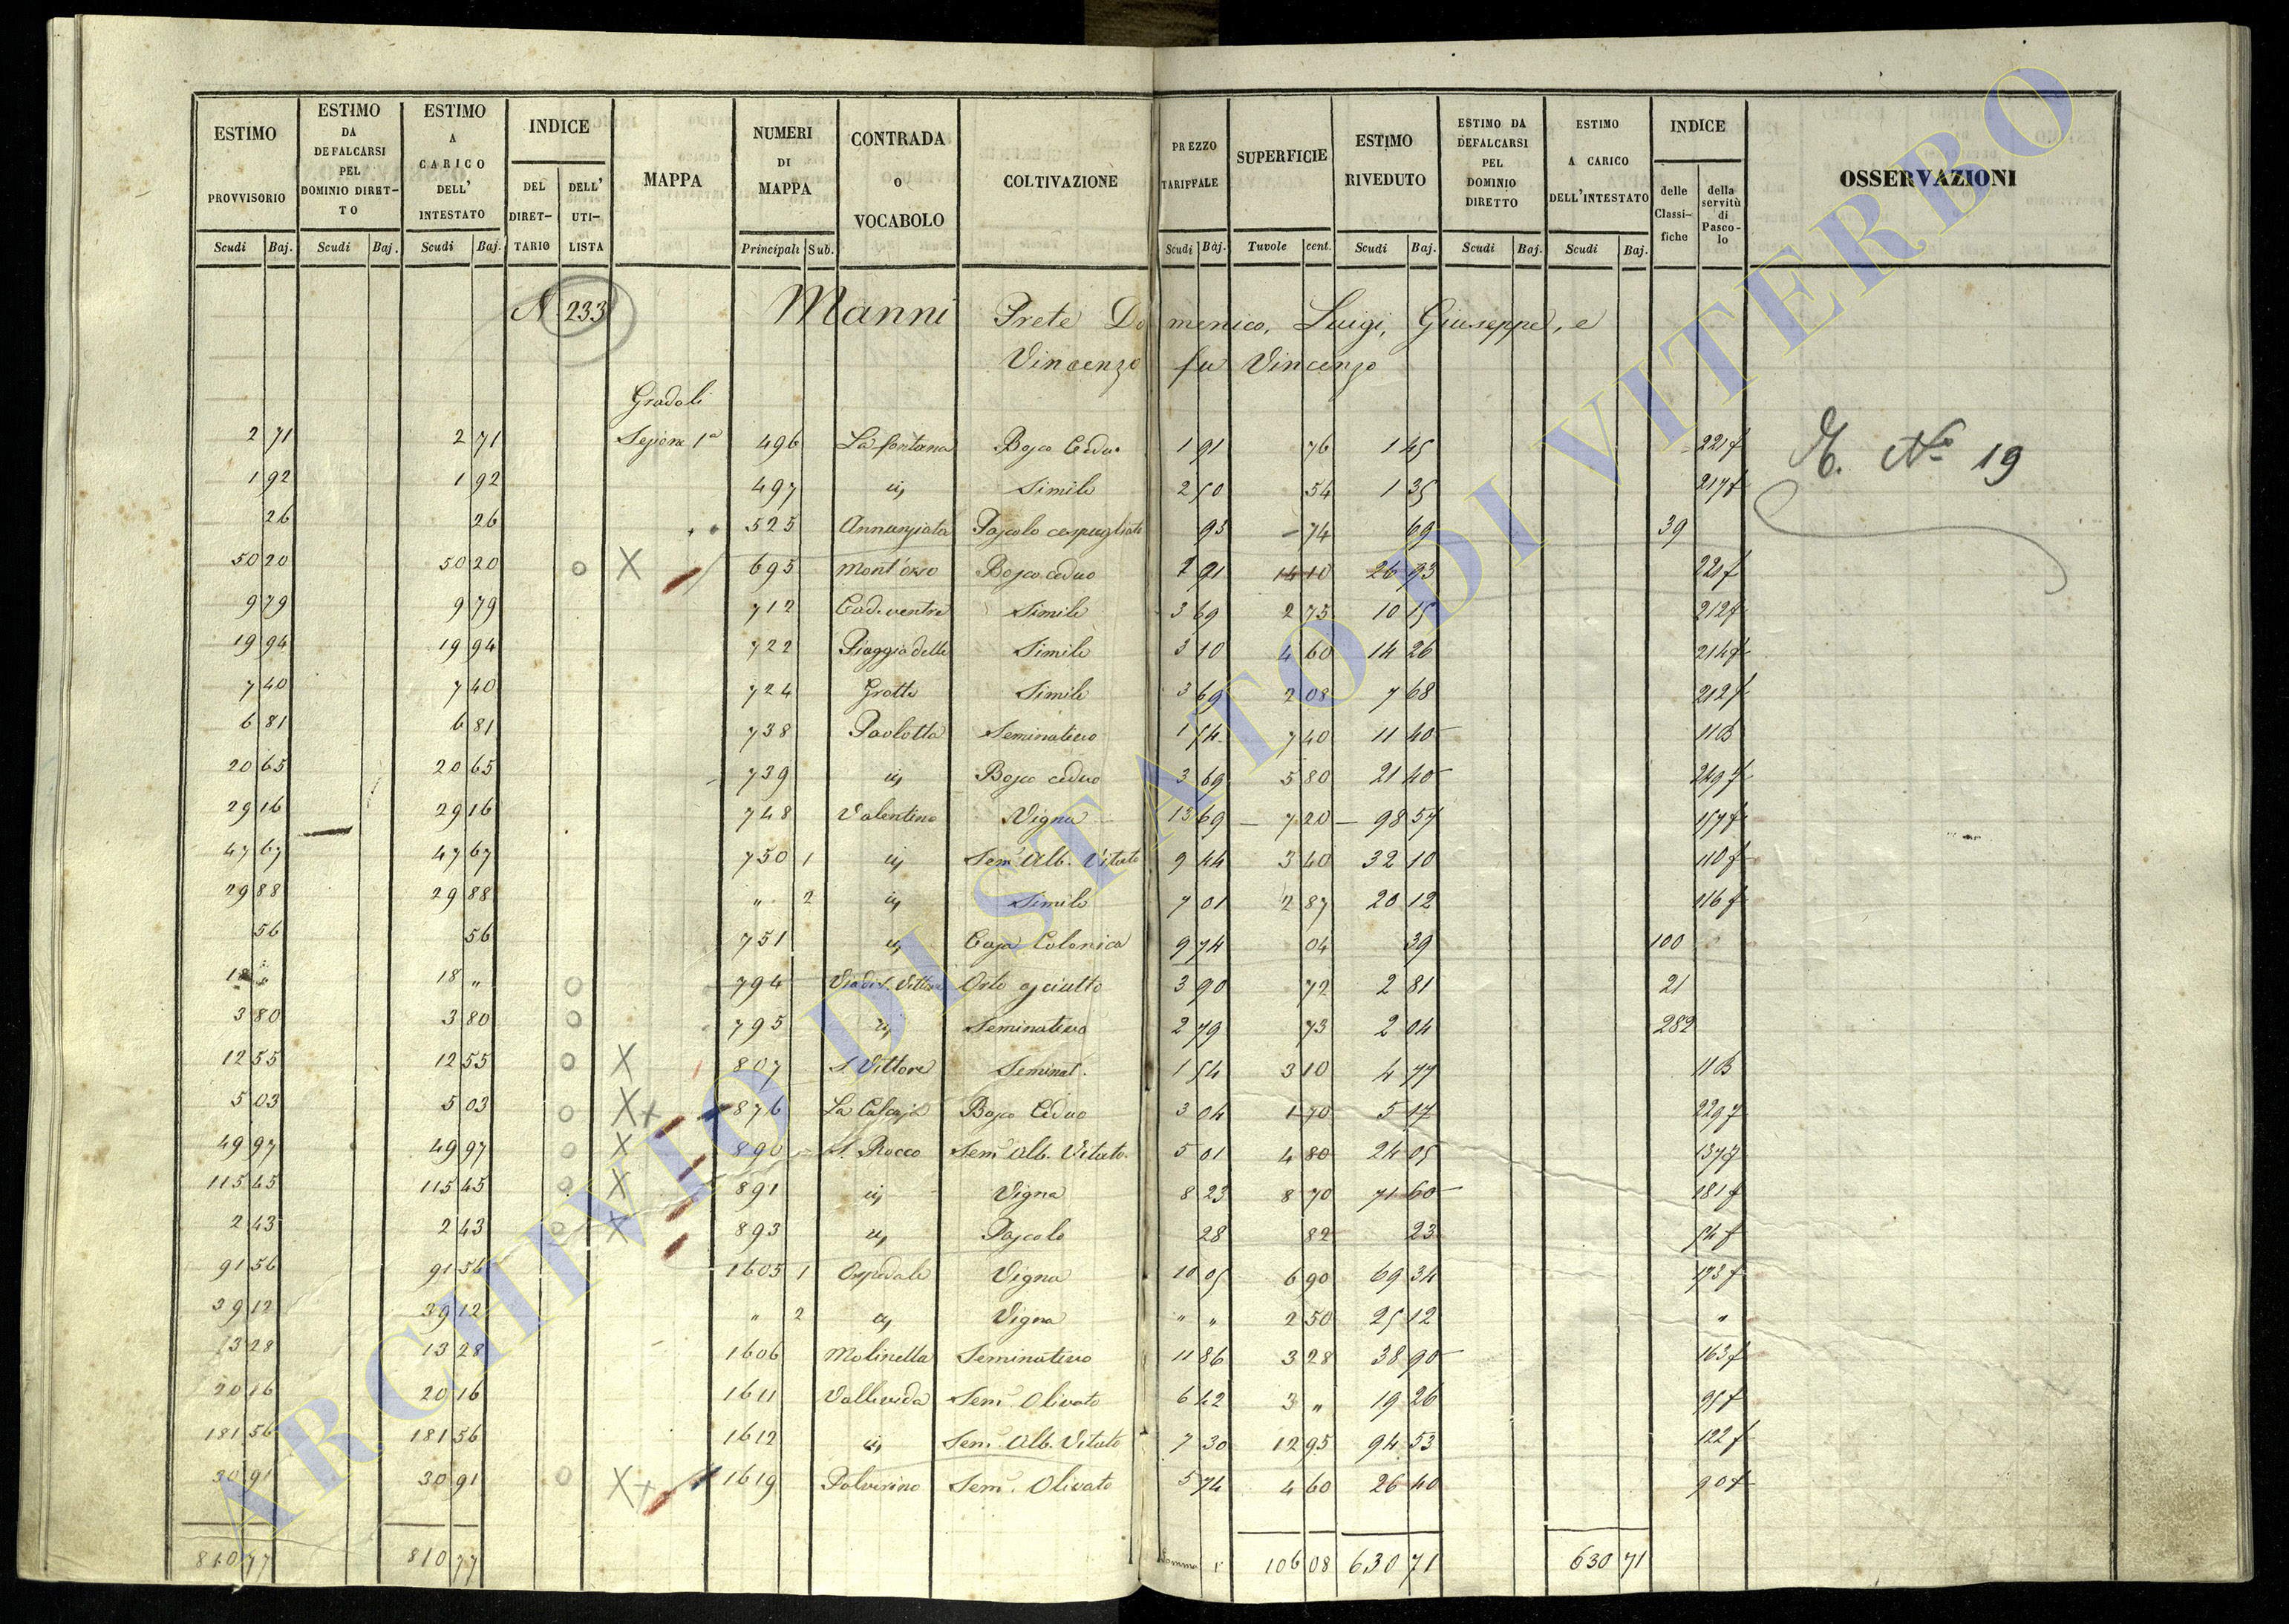 ESTIMO PROVVISORIO Scudi Baj. | ESTIMO DA DEFALCARSI PEL DOMINIO DIRET-TO Scudi Baj. | ESTIMO A CARICO DELL' INTESTATO Scudi Baj. | INDICE DEL DIRET-TARIO DELL' UTI-LISTA | MAPPA | NUMERI DI MAPPA Principali Sub. | CONTRADA O VOCABOLO | COLTIVAZIONE | PREZZO TARIFFALE Scudi Baj. | SUPERFICIE Tavole cent. | ESTIMO RIVEDUTO Scudi Baj. | ESTIMO DA DEFALCARSI PEL DOMINIO DIRETTO Scudi Baj. | ESTIMO A CARICO DELL'INTESTATO Scudi Baj. | INDICE delle Classi-fiche della servitù di Pasco-lo | OSSERVAZIONI
N. 233 Manni Prete Domenico, Luigi, Giuseppe, e
Vincenzo fu Vincenzo
Gradoli
2 71 2 71 Sezione 1a 496 La fontana Bosco Ceduo 1 91 76 1 45 221 f
1 92 1 92 497 id Simile 2 50 54 1 35 217 f
E. No 19
26 26 525 Annunziata Pascolo cespugliato 93 74 69 39
50 20 50 20 o X 695 Mont'orso Bosco ceduo 1 91 14 10 26 93 221 f
9 79 9 79 712 Cadeventre Simile 3 69 2 75 10 15 212 f
19 94 19 94 722 Piaggia delle Simile 3 10 4 60 14 26 214 f
7 40 7 40 724 Grotte Simile 3 69 2 08 7 68 212 f
6 81 6 81 738 Paolotta Seminativo 1 54 7 40 11 40 113
20 65 20 65 739 id Bosco ceduo 3 69 5 80 21 40 249 f
29 16 29 16 748 Valentino Vigna 13 69 7 20 98 57 157 f
47 67 47 67 750 1 id Sem. Alb. Vitato 9 44 3 40 32 10 110 f
29 88 29 88 " 2 id Simile 7 01 2 87 20 12 116 f
56 56 751 id Casa Colonica 9 74 04 39 100
18 " 18 " o 794 Via di S. Vittore Orto asciutto 3 90 72 2 81 21
3 80 3 80 o 795 id Seminativo 2 79 73 2 04 282
12 55 12 55 o X 807 S. Vittore Seminat. 1 54 3 10 4 77 113
5 03 5 03 o X+ 876 Bosco Ceduo 3 04 1 70 5 17 229 f
49 97 49 97 o X 890 S. Rocco Sem. Alb. Vitato. 5 01 4 80 24 05 137 f
115 45 115 45 o X 891 id Vigna 8 23 8 70 71 60 181 f
2 43 2 43 o X 893 id Pascolo 28 82 23 54 f
91 56 91 56 1605 1 Ospedale Vigna 10 05 6 90 69 34 173 f
39 12 39 12 " 2 id Vigna " " 2 50 25 12 "
13 28 13 28 1606 Molinella Seminativo 11 86 3 28 38 90 163 f
20 16 20 16 1611 Vallevida Sem. Olivato 6 42 3 " 19 26 95 f
181 56 181 56 1612 id Sem. Alb. Vitato 7 30 12 95 94 53 122 f
30 91 30 91 o X+ 1619 Polverino Sem. Olivato 5 74 4 60 26 40 90 f
810 77 810 77 Somma 106 08 630 71 630 71
ARCHIVIO DI STATO DI VITERBO